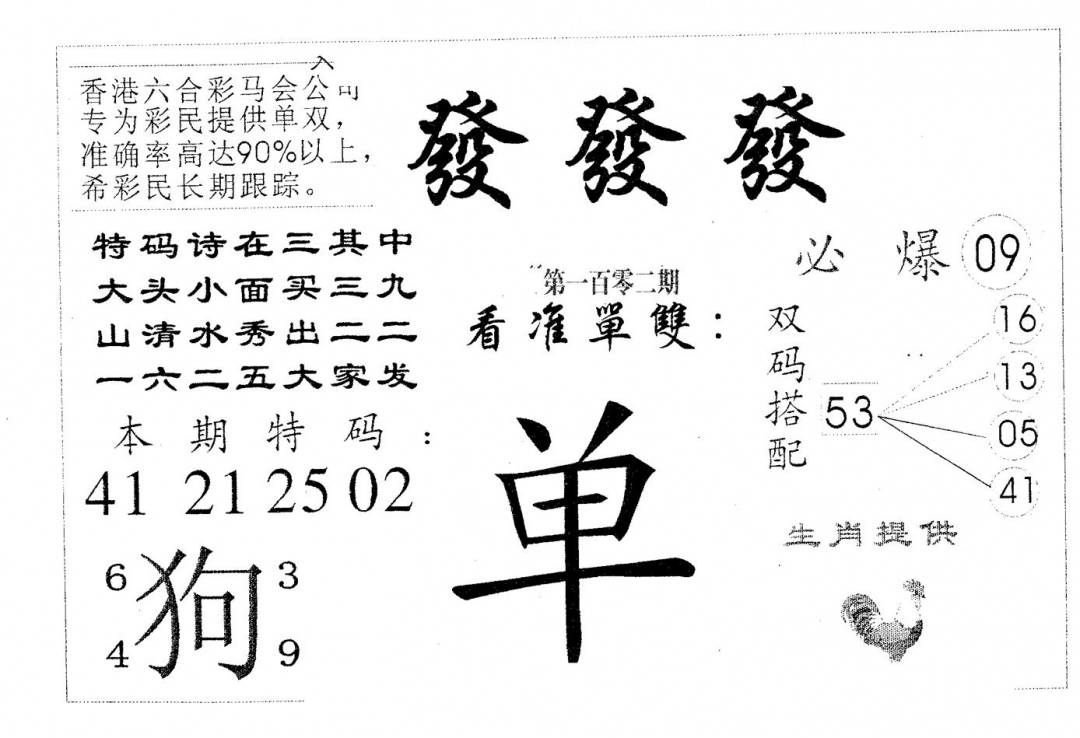 香港六合彩马会公司
专为彩民提供单双，
准确率高达90%以上，
希彩民长期跟踪。
發 發 發
特码诗在三其中
大头小面买三九
山清水秀出二二
一六二五大家发
第一百零二期
看准單雙：
单
必 爆 09
双码搭配
53
16
13
05
41
本期特码：
41 21 25 02
6 3
狗
4 9
生肖提供